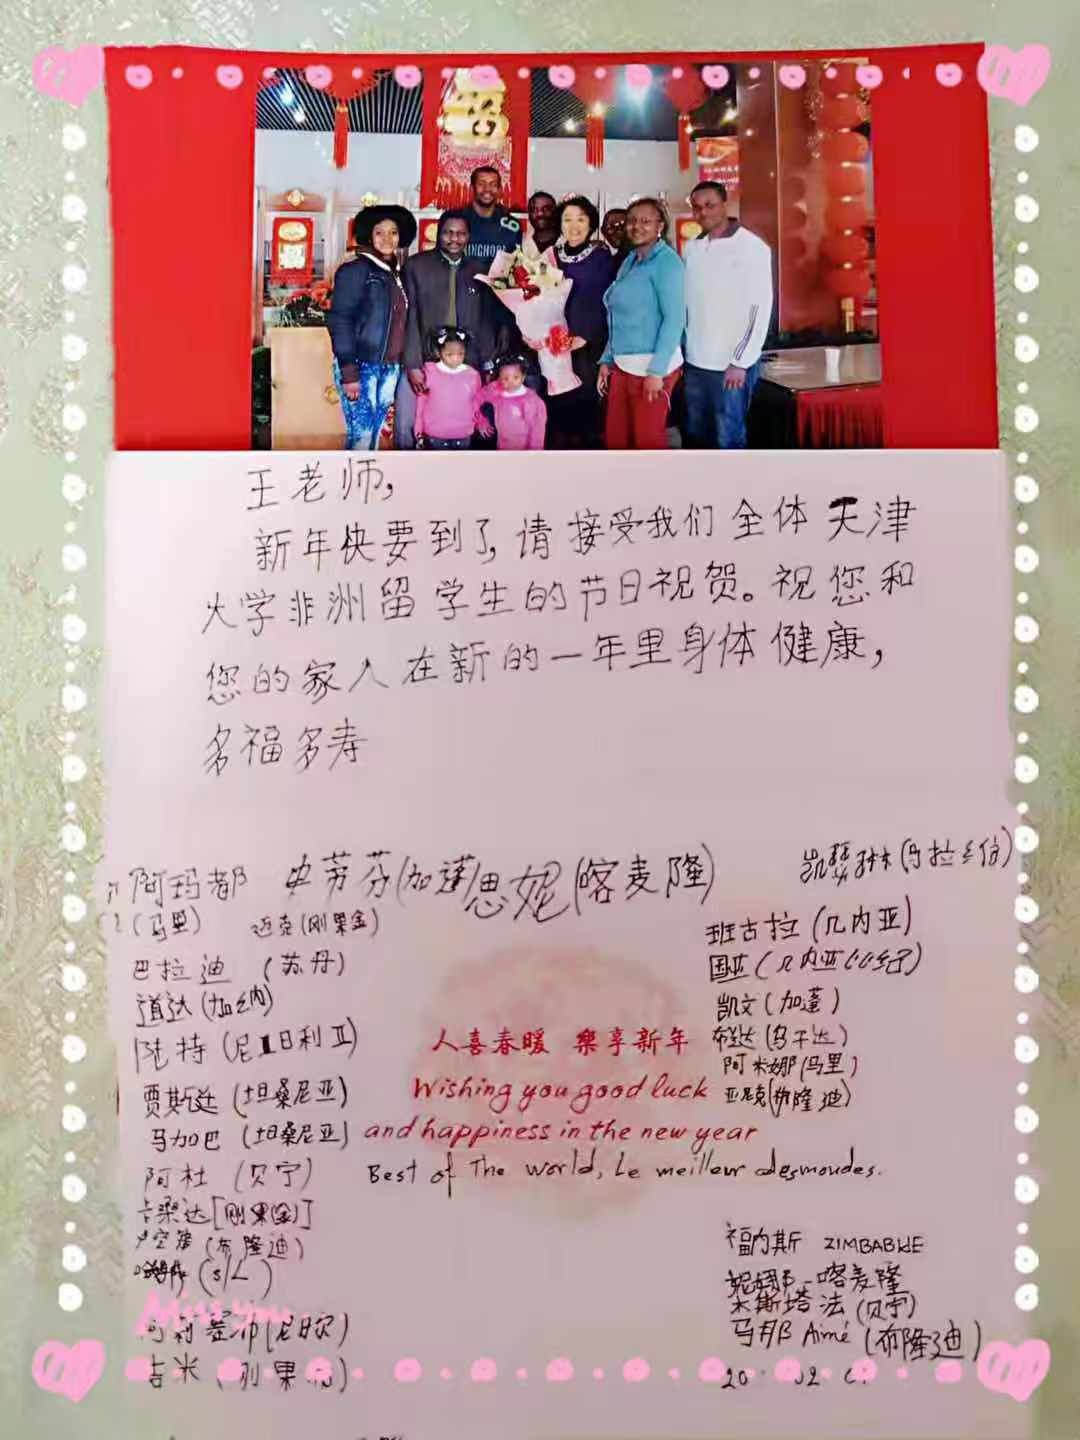 福
王老师,
新年快要到了,请接受我们全体天津
大学非洲留学生的节日祝贺。祝您和
您的家人在新的一年里身体健康,
多福多寿
阿玛都 史劳芬(加蓬)思妮(喀麦隆)
(马里) 迈克(刚果金)
巴拉迪 (苏丹)
道达(加纳)
陆特(尼日利亚)
贾斯廷(坦桑尼亚)
马加巴 (坦桑尼亚)
阿杜 (贝宁)
卡桑达[刚果(金)]
(布隆迪)
(S/L)
(尼日尔)
吉米
凯瑟琳(马拉维)
班古拉(几内亚)
国亚(几内亚比绍)
凯文(加蓬)
布达(乌干达)
阿米娜(马里)
亚尼克(布隆迪)
人喜春暖 樂享新年
Wishing you good luck
and happiness in the new year
Best of The world, Le meilleur des mondes.
福内斯 ZIMBABWE
妮娜-喀麦隆
木斯塔法(贝宁)
马邦 Aimé (布隆迪)
Miss you